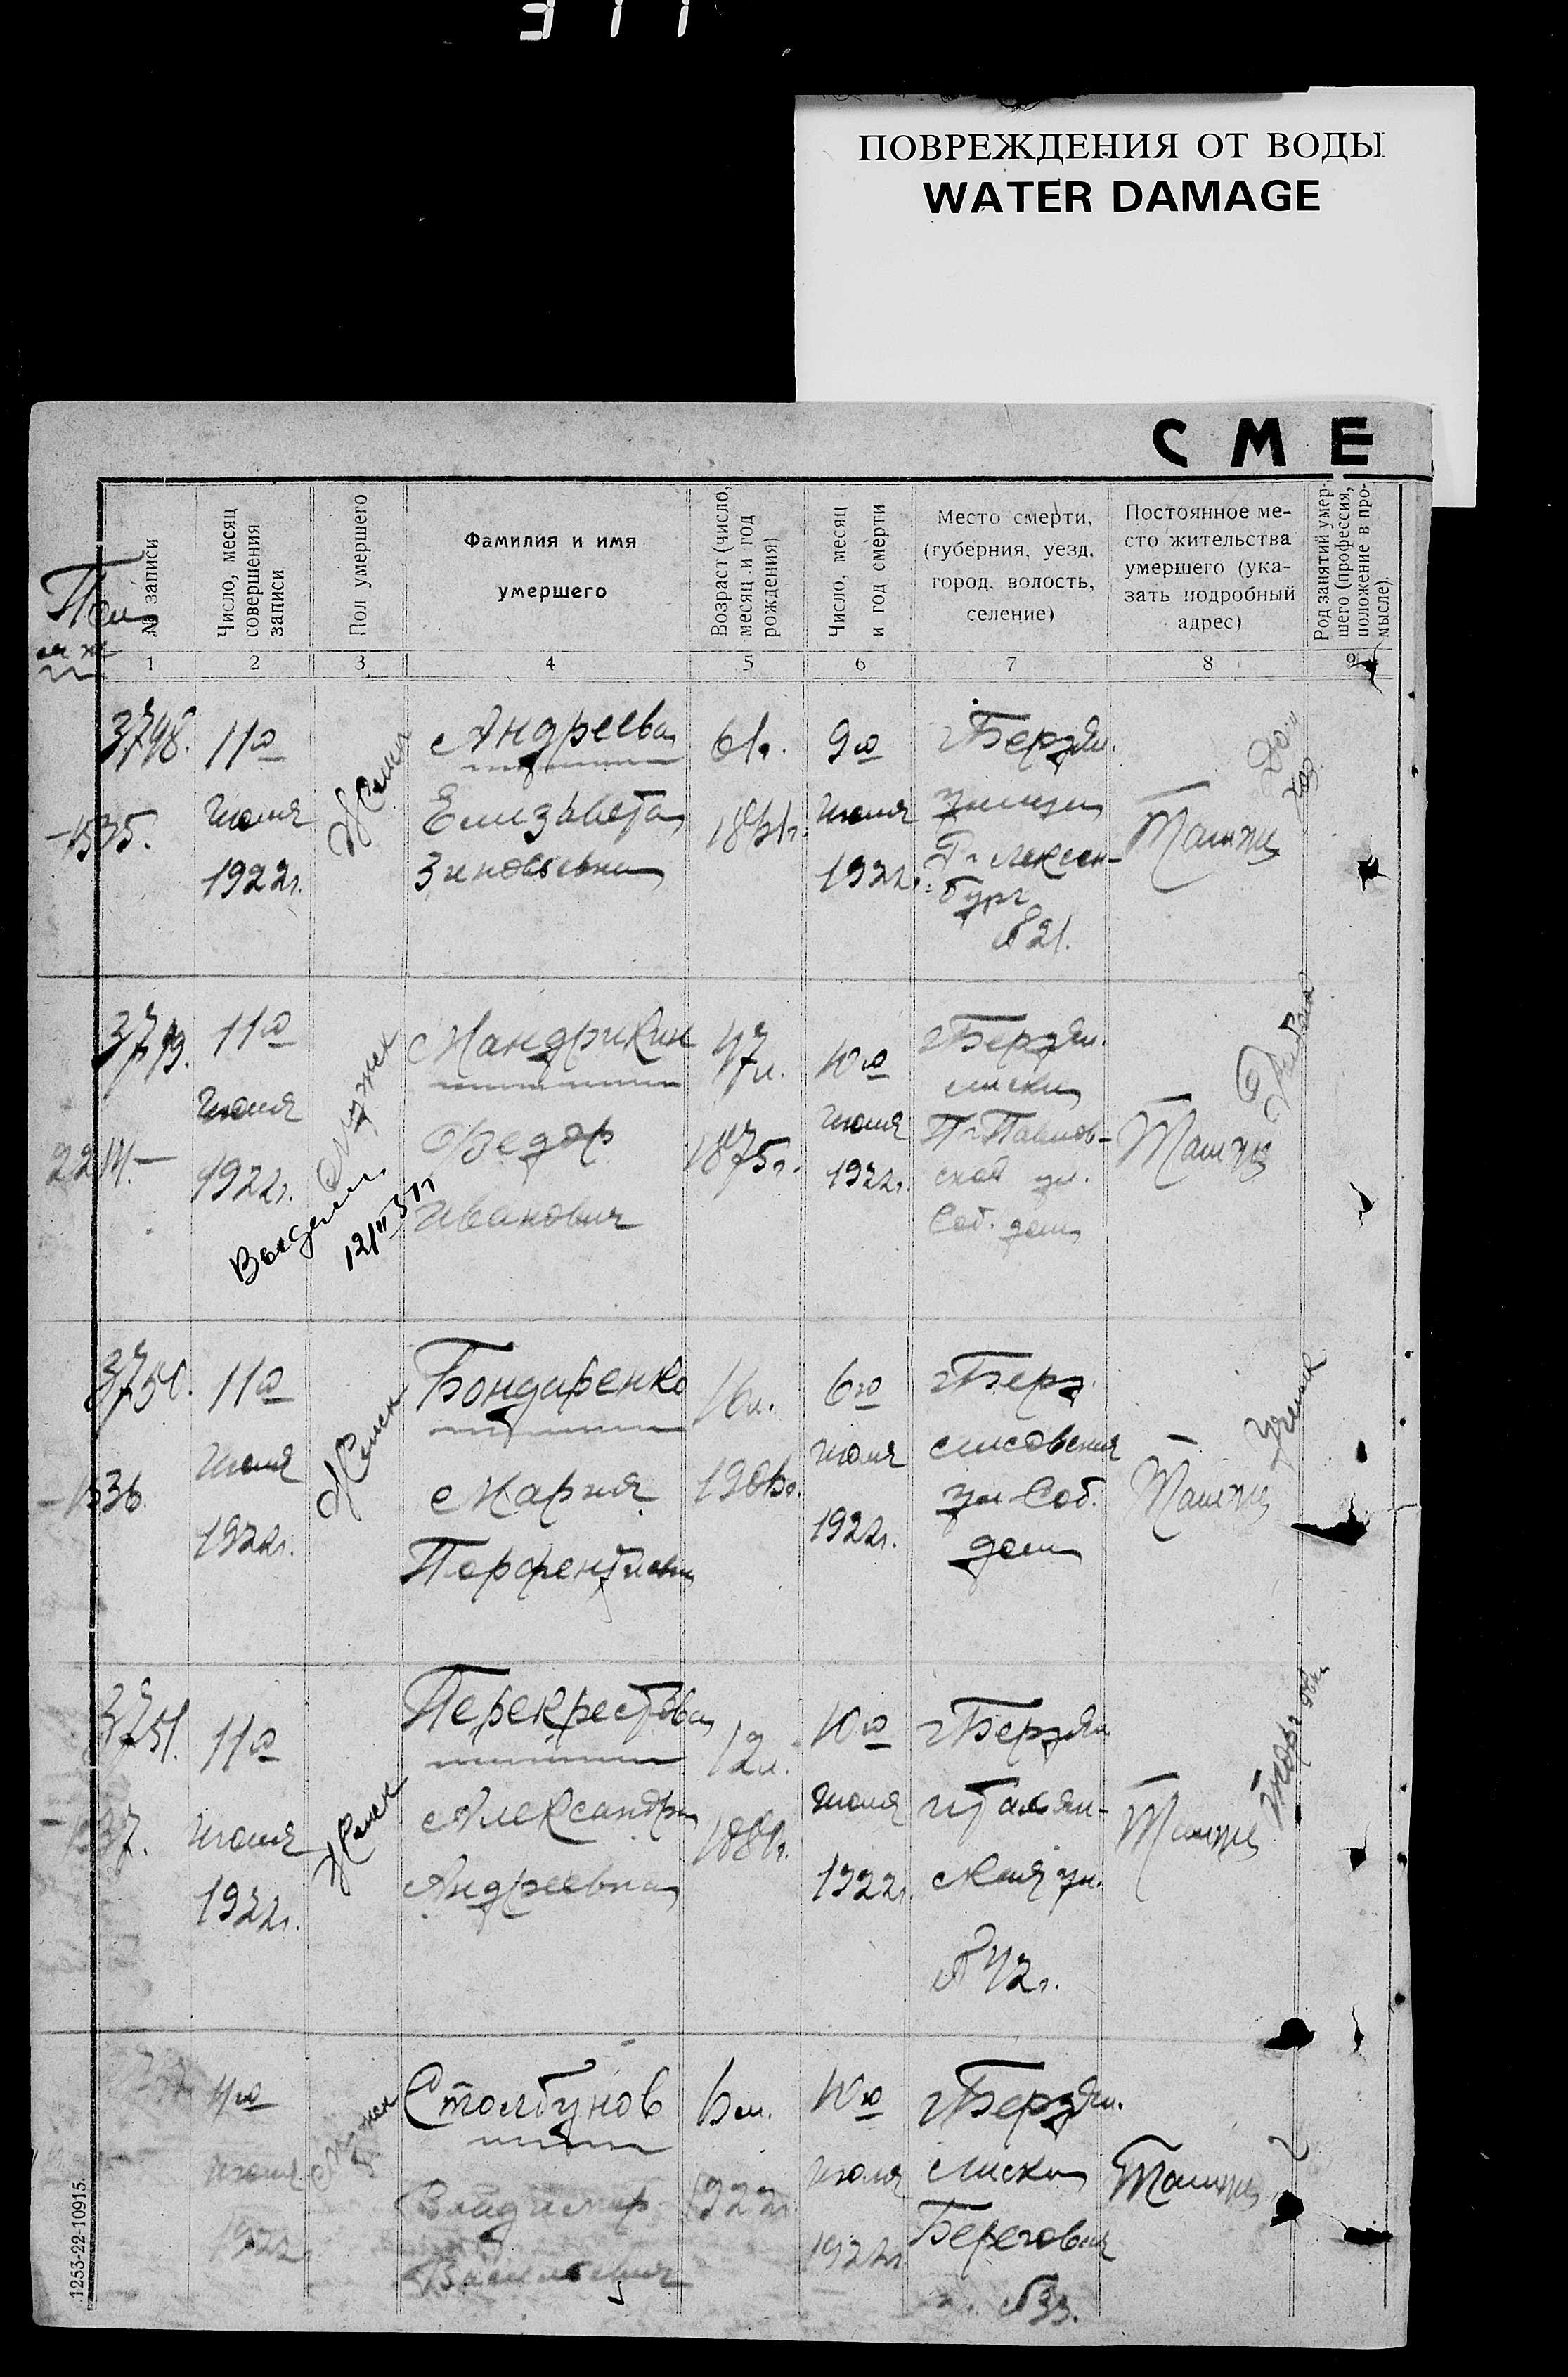 377
ПОВРЕЖДЕНИЯ ОТ ВОДЫ
WATER DAMAGE
СМЕ
№ записи
Число, месяц
совершения
записи
Пол умершего
Фамилия и имя
умершего
Возраст (число,
месяц и год
рождения)
Число, месяц
и год смерти
Место смерти,
(губерния, уезд,
город, волость,
селение)
Постоянное ме-
сто жительства
умершего (ука-
зать подробный
адрес)
Род занятий умер-
шего (профессия,
положение в про-
мысле)
1 2 3 4 5 6 7 8 9
3748.
1535.
11го
июля
1922г.
Женск
Андреева
Елизавета
Зиновьевна
61г.
1861г.
9го
июля
1922г.
г Бердян.
Люксем-
бург
№ 21.
Там же
3749.
2214.
11го
июля
1922г.
Мужск
Мандрикин
Федор
Иванович
47л.
1875г.
10го
июля
1922г.
г Бердян.
лиски
Павлов-
ская ул.
Соб. дом
Там же
3750.
1536
11го
июля
1922г.
Женск
Бондаренко
Мария
16л.
1906г.
6го
июля
1922г.
г Берд.
ул Соб.
дом
Там же
3751.
1537.
11го
июля
1922г.
Женск
Перекрестова
Александра
Андреевна
10го
июля
1922г.
г Бердян
Итальян-
ская ул.
Там же
11го
июля
1922
Мужск
Столбунов
Владимир
Васильевич
6м.
1922г.
10го
июля
1922г.
г Бердян.
Лиски
Береговая
Там же
1253-22-10915.